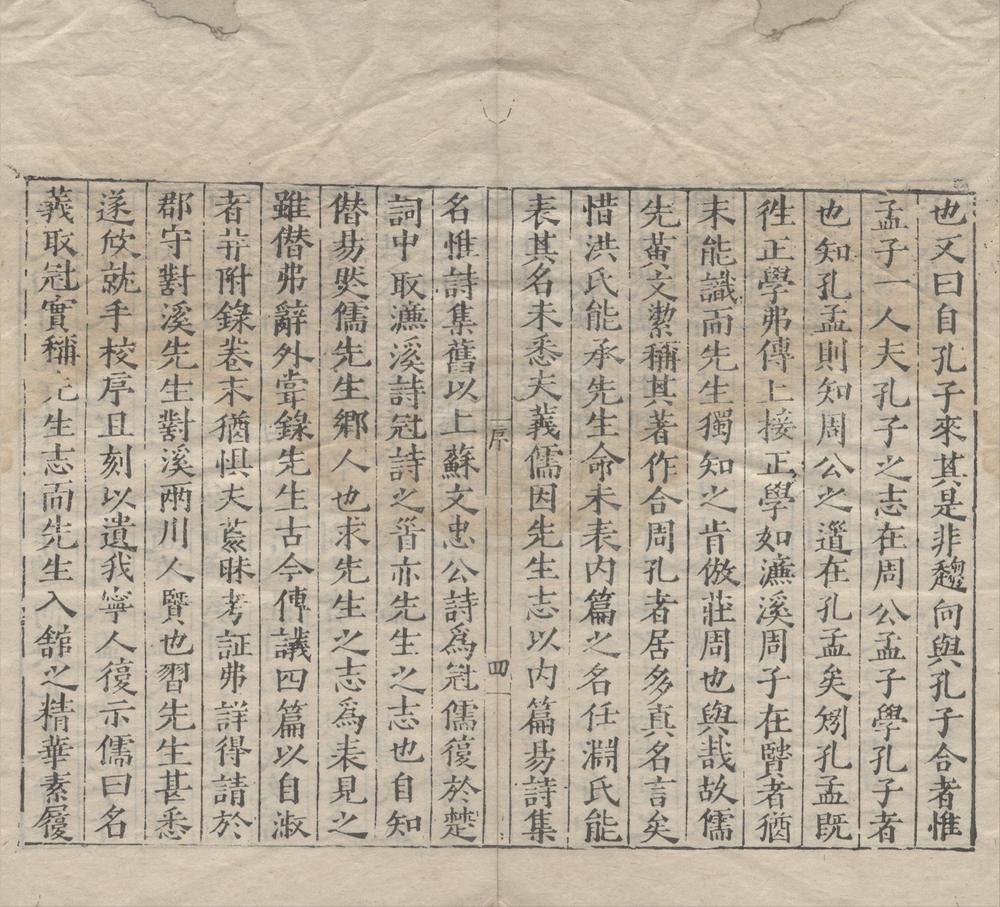 也又曰自孔子來其是非趨向與孔子合者惟
孟子一人夫孔子之志在周公孟子學孔子者
也知孔孟則知周公之道在孔孟矣矧孔孟既
徃正學弗傳上接正學如濂溪周子在賢者猶
未能識而先生獨知之肯倣莊周也與哉故儒
先黃文潔稱其著作合周孔者居多真名言矣
惜洪氏能承先生命未表內篇之名任淵氏能
表其名未悉夫義儒因先生志以內篇易詩集
序
四
名惟詩集舊以上蘇文忠公詩爲冠儒復於楚
詞中取濂溪詩冠詩之首亦先生之志也自知
僭易然儒先生鄉人也求先生之志爲表見之
雖僭弗辭外嘗錄先生古今傳議四篇以自淑
者并附錄卷末猶惧夫蒙昧考証弗詳得請於
郡守對溪先生對溪兩川人賢也習先生甚悉
遂欣就手校序且刻以遺我寧人復示儒曰名
義取冠實稱先生志而先生入舘之精華素履